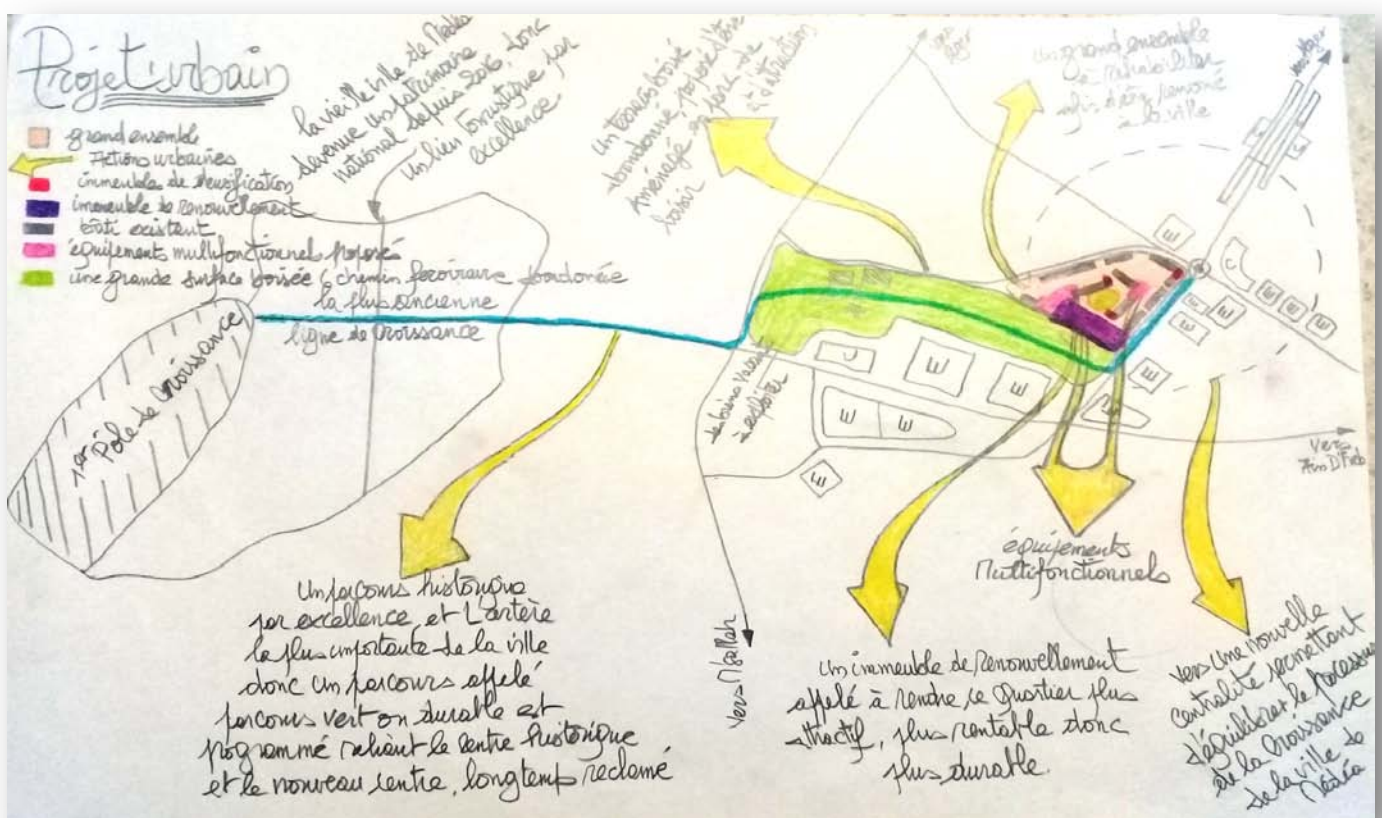 Projet urbain
grand ensemble
Actions urbaines
immeubles de densification
immeuble de renouvellement
bâti existent
équipements multifonctionnels proposé
une grande surface boisée / chemin féroviaire abandonnée
la vieille ville de Médéa
devenue un patrimoine
national depuis 2016, donc
un lien touristique par
excellence
la plus ancienne
ligne de croissance
1er Pôle de croissance
Un terrain boisé
abandonné, proposé d'être
Aménagé en parc de
loisir et d'attraction
Un grand ensemble
à réhabiliter
afin d'être renoué
à la ville
Vers Alger
à exploiter
E
E
E
E
E
E
E
E
Vers
Ain D'heb
Vers M'sallah
équipements
Multifonctionnels
Un parcours historique
par excellence, et L'artère
la plus importante de la ville
donc un parcours appelé
parcours vert ou durable est
programmé reliant le centre historique
et le nouveau centre, longtemp réclamé
Un immeuble de renouvellement
appelé à rendre ce Quartier plus
attractif, plus rentable donc
plus durable.
Vers Une nouvelle
centralité permettant
d'équilibrer le Processus
de la Croissance
de la ville de
Médéa